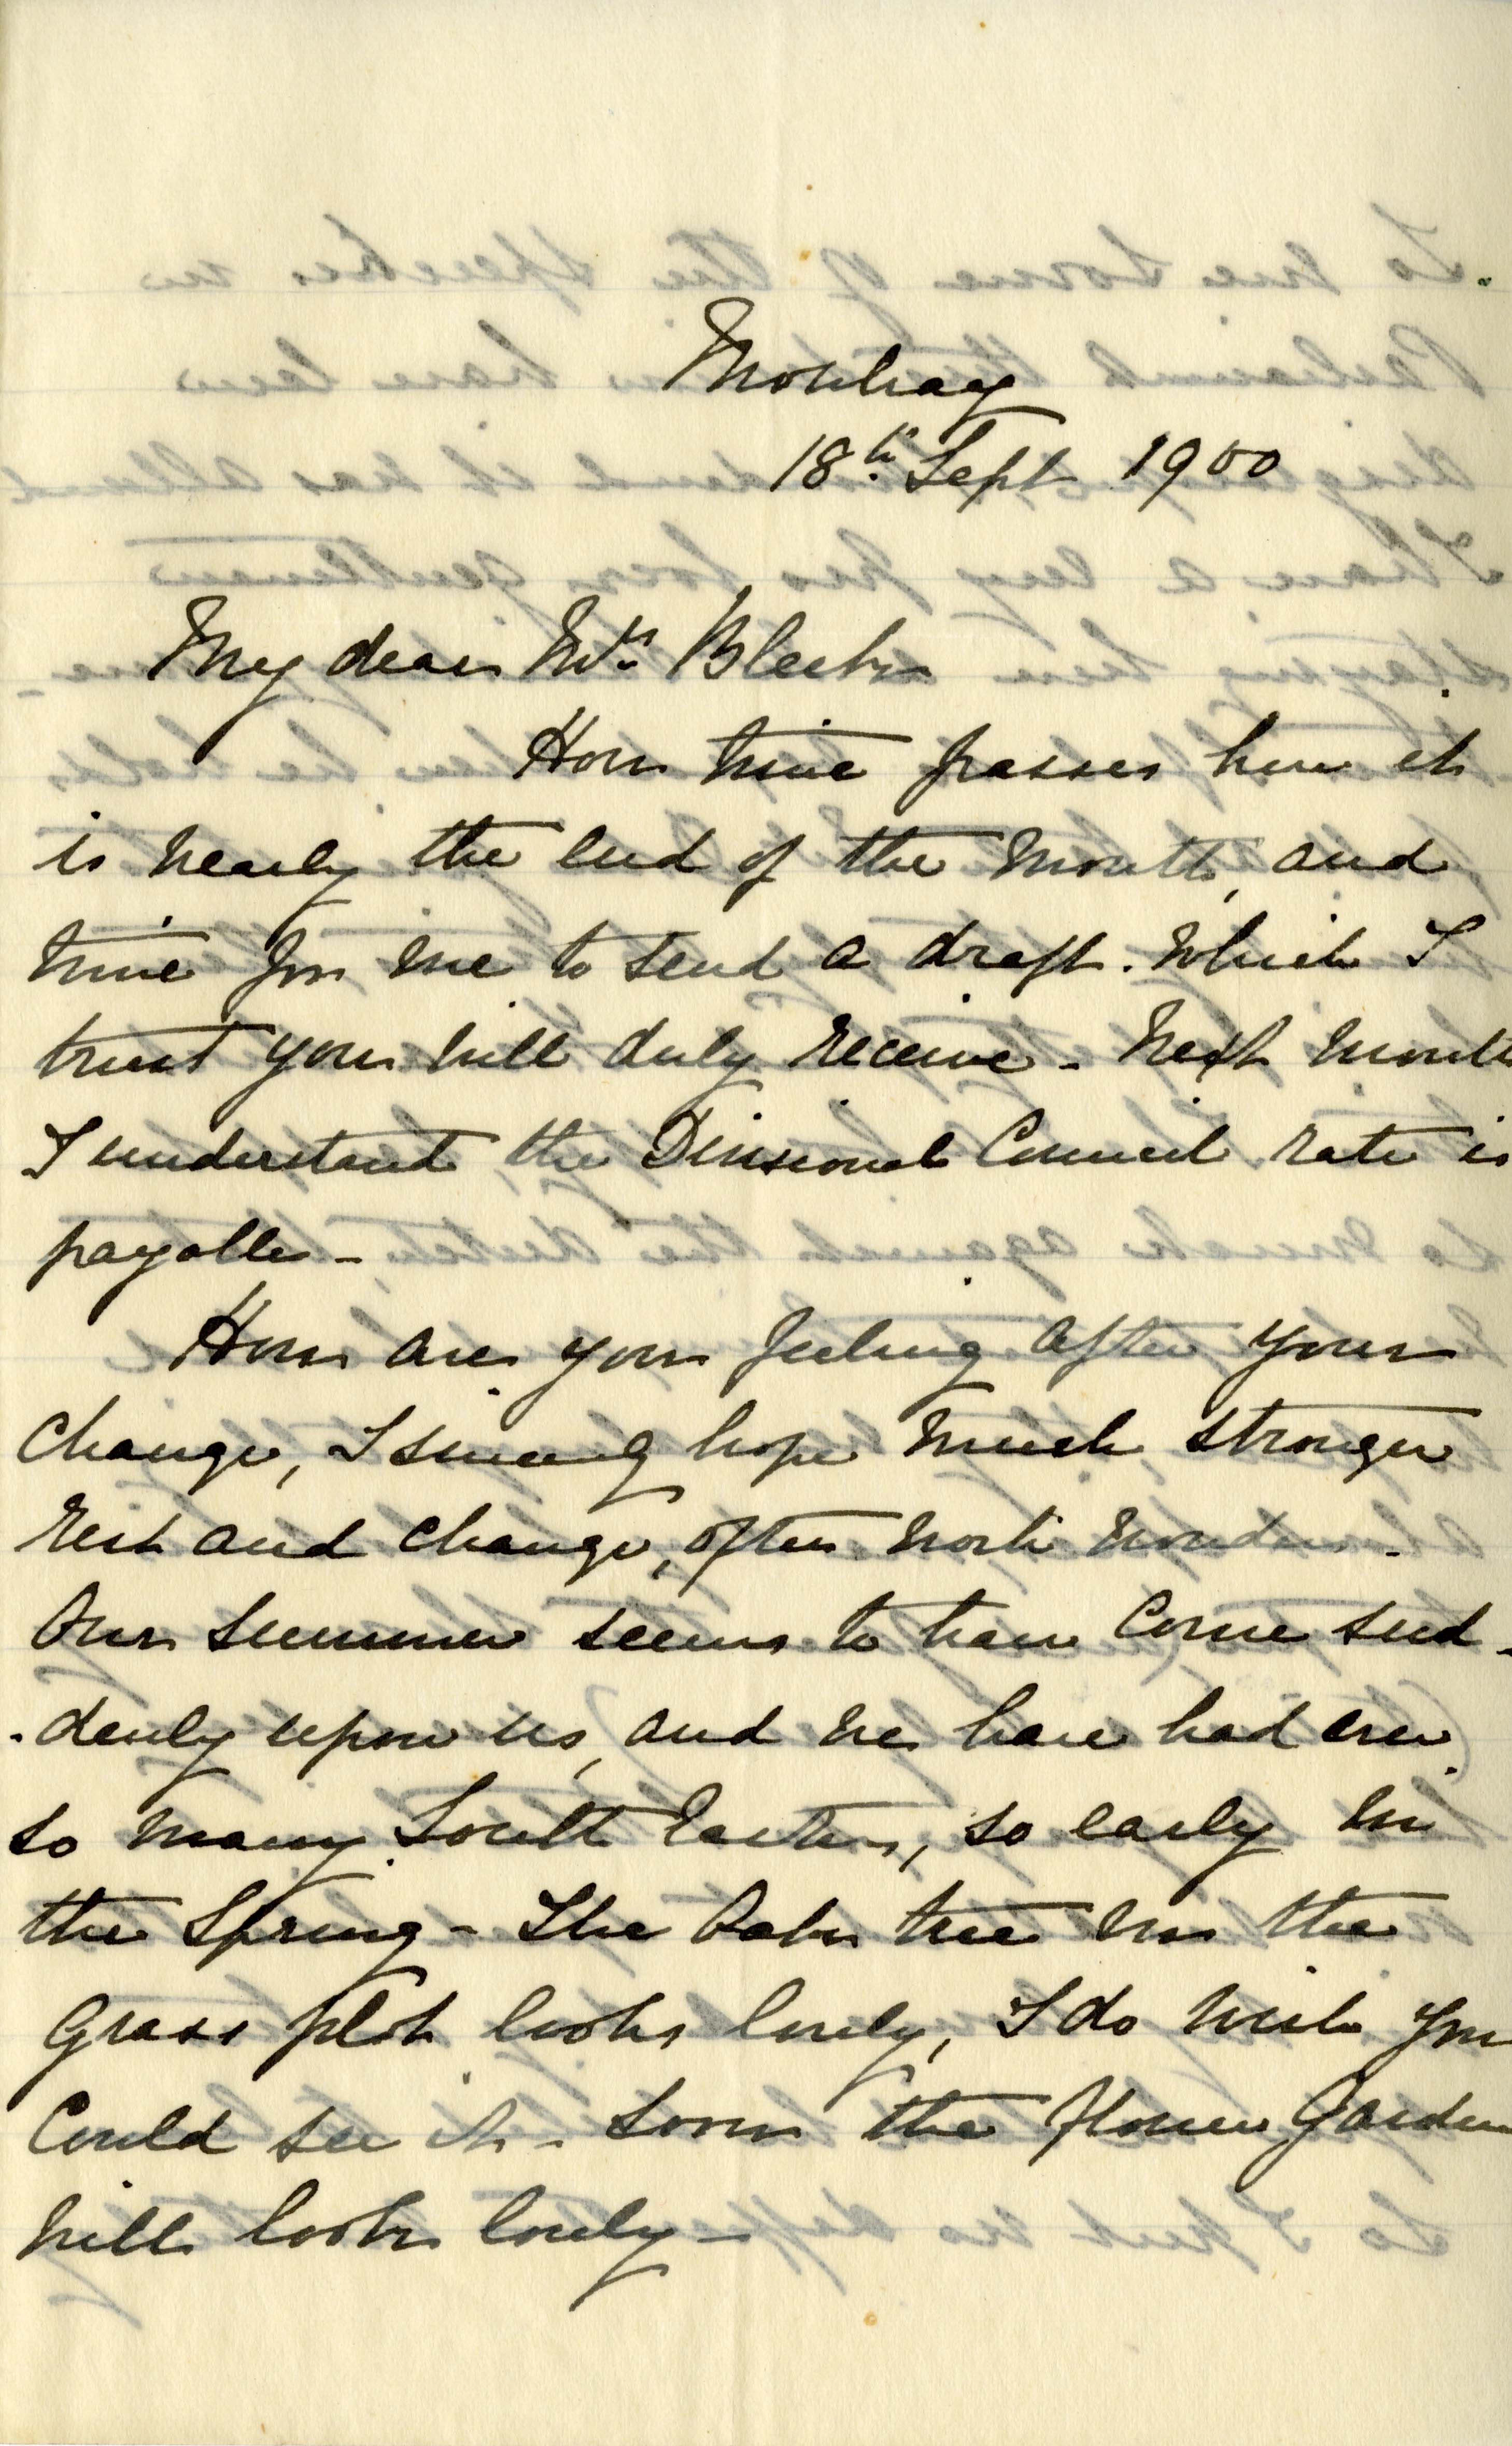 Mowbray
18th. Sept 1900
My dear Mrs. Bleek
How time passes here it
is nearly the end of the month, and
time for me to send a draft. which I
trust you will duly receive - Next month
I understand the Divisional Council rate is
payable -
How are you feeling after your
change, I sincerely hope much stronger
rest and change, often work wonders -
Our summer seems to have come sud-
-denly upon us, and we have had ever
so many South Easters, so early in
the Spring - The Oak tree on the
grass plot looks lovely, I do wish you
could see it - Soon the flower garden
will look lovely -